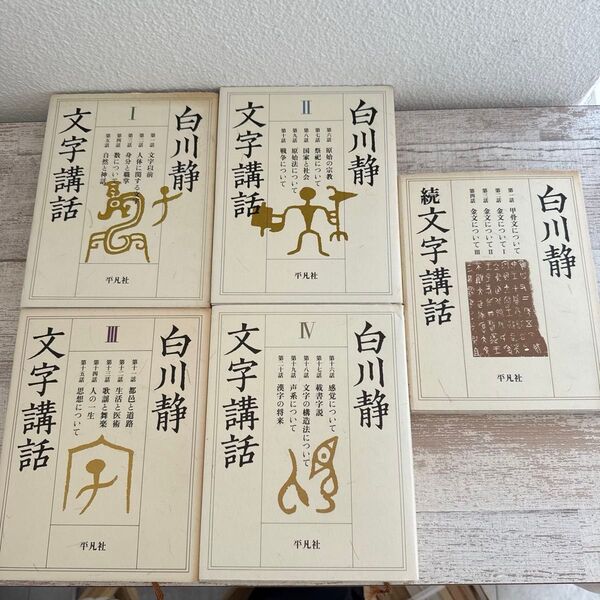 白川静
文字講話
I
第一話 文字以前
第二話 人体に関する
第三話 身分と職掌
第四話 数について
第五話 自然と神話
平凡社
白川静
文字講話
II
第六話 原始の宗教
第七話 祭祀について
第八話 国家と社会
第九話 原始法について
第十話 戦争について
平凡社
白川静
文字講話
III
第十一話 都邑と道路
第十二話 生活と医術
第十三話 歌謡と舞楽
第十四話 人の一生
第十五話 思想について
平凡社
白川静
文字講話
IV
第十六話 感覚について
第十七話 載書字説
第十八話 文字の構造法について
第十九話 声系について
第二十話 漢字の将来
平凡社
白川静
続文字講話
第一話 甲骨文について
第二話 金文について I
第三話 金文について II
第四話 金文について III
平凡社